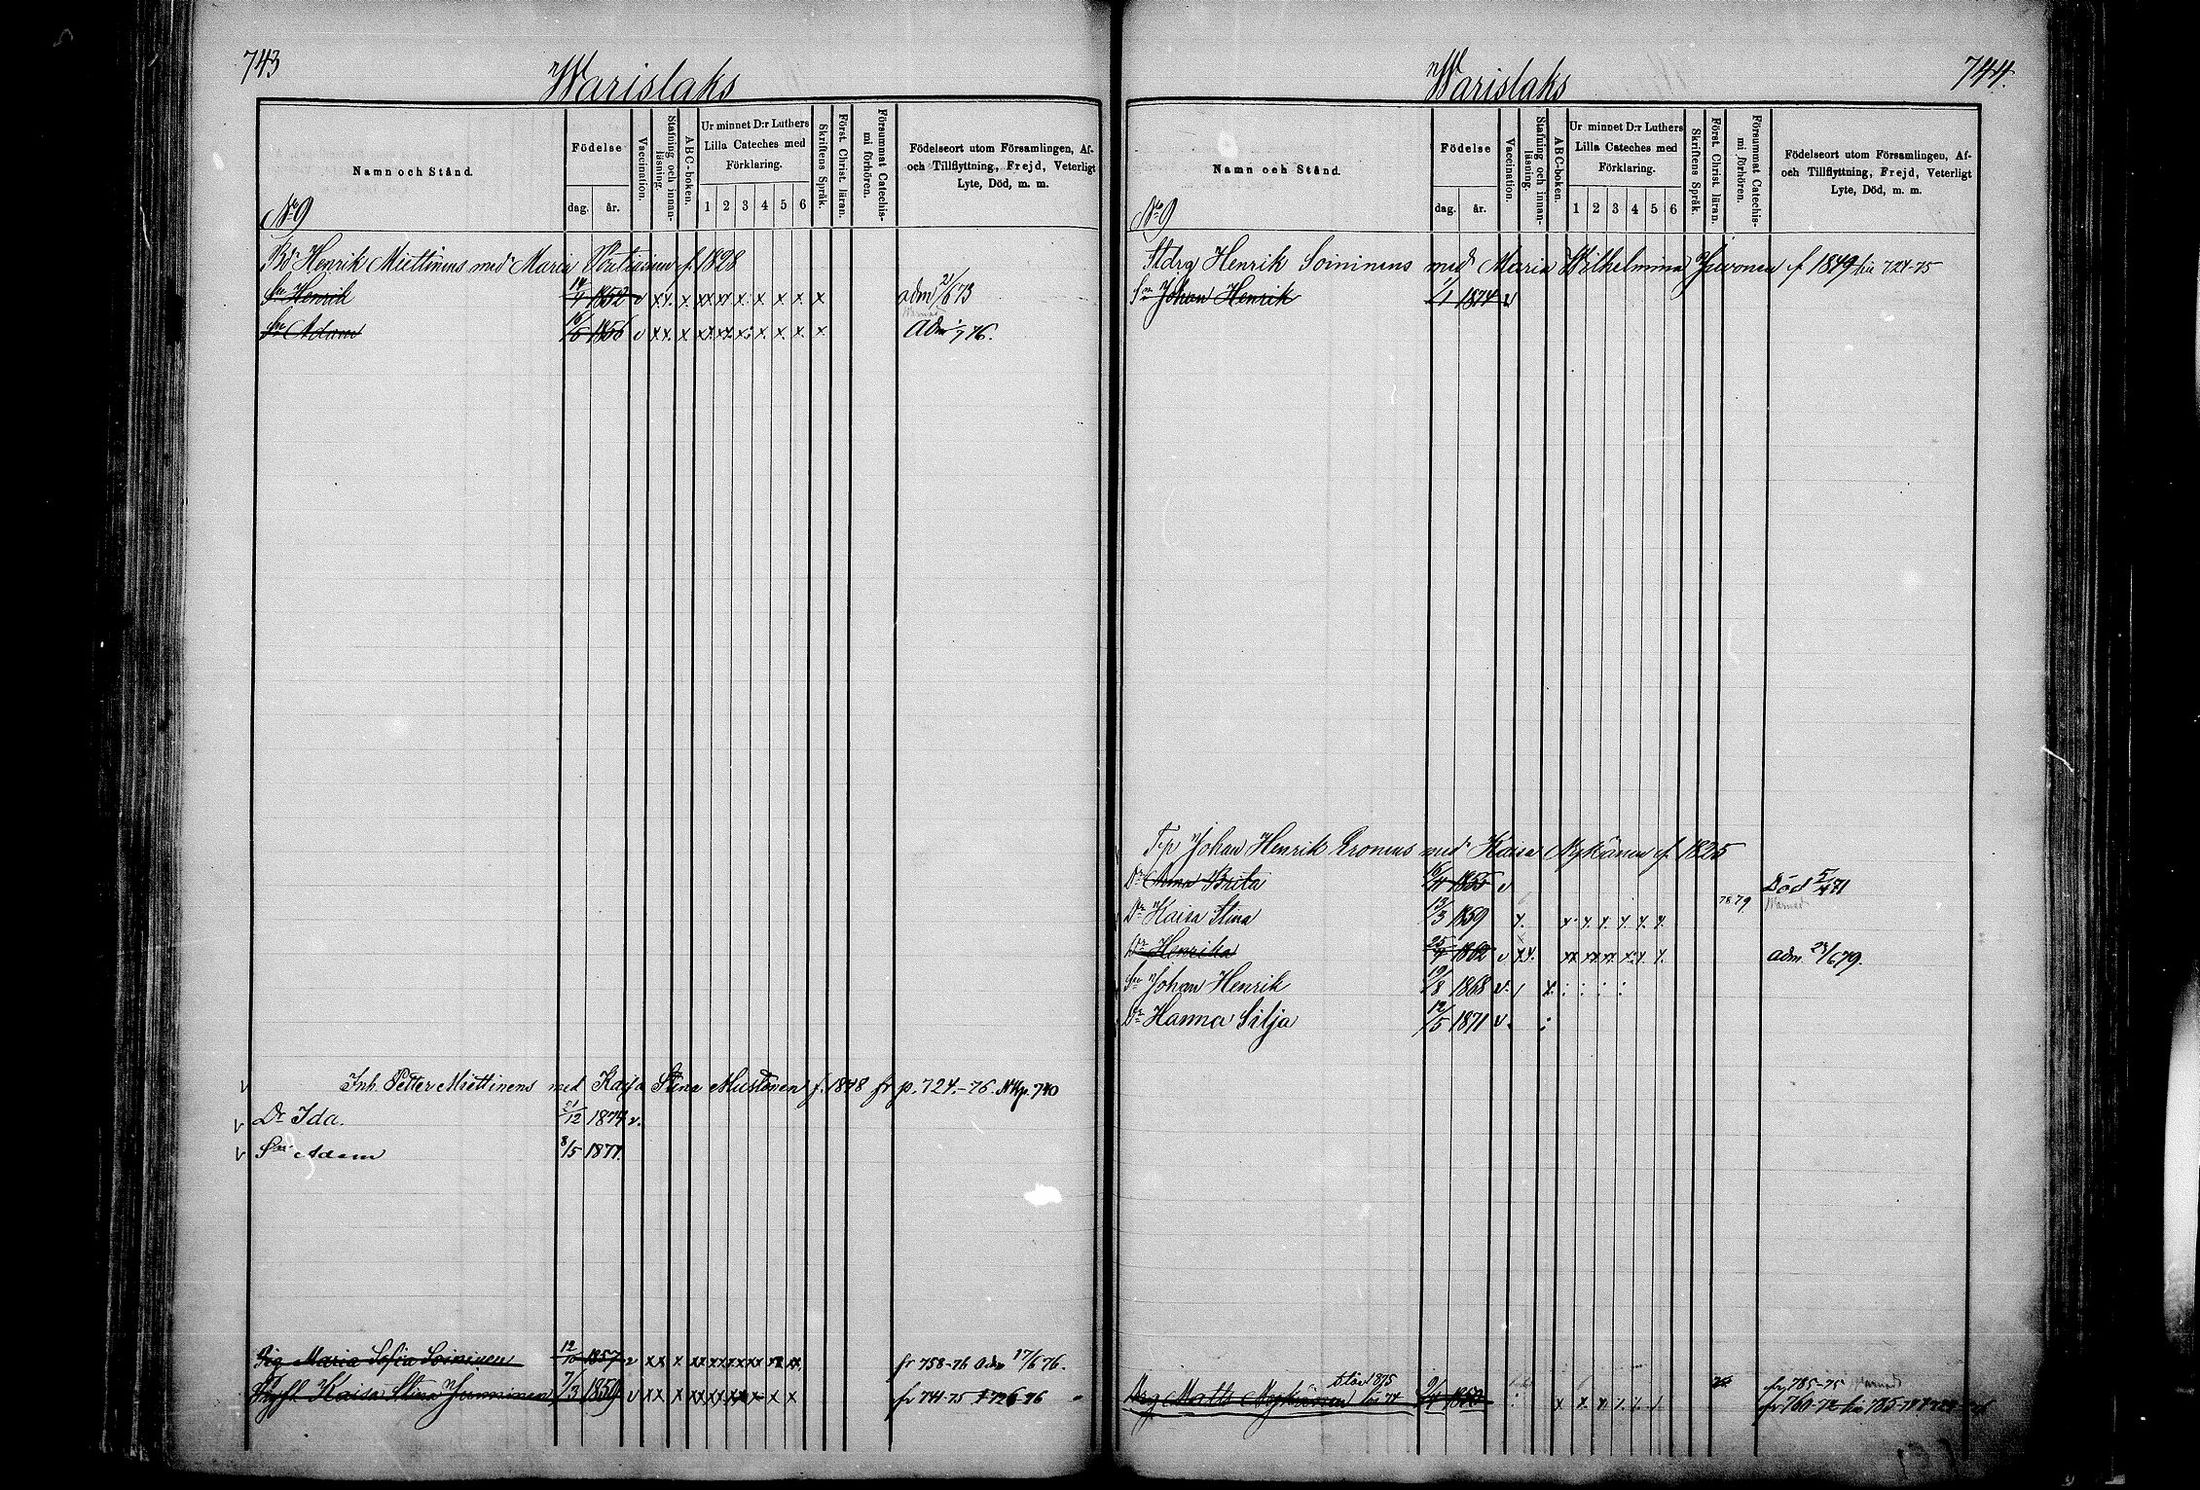 743
Warislaks
Namn och Stånd.
Födelse
dag. år.
Vaccination.
Stafning och innan-
läsning.
ABC-boken.
Ur minnet D:r Luthers
Lilla Cateches med
Förklaring.
1 2 3 4 5 6
Skriftens Språk.
Först. Christ. läran.
Försummat Catechis-
mi förhören.
Födelseort utom Församlingen, Af-
och Tillflyttning, Frejd, Veterligt
Lyte, Död, m. m.
No 9
Henrik Miettinens med Maria f. 1828
Sn Henrik 1852 v xx. x. xx xx x x x x x adm 21/6 73
Sn Adam 16/5 1856 v xx. x xx. xx. x. x. x. x. x adm 76.
Inh. Petter Miettinens med Kajsa Stina Mustonen f. 1848 fr p. 724.-76. 740
v Dr Ida. 21/12 1874 v.
v Sn Adam 8/5 1877.
Pig Maria Sofia Soininen 12/10 1857 v xx x xx xx xx xx xx xx. fr 758-76 adm 17/6 76.
Kaisa Stina 7/3 1859 v xx x xx xx xx xx x x fr 741-75 726-76
744.
Warislaks
Namn och Stånd.
Födelse
dag. år.
Vaccination.
Stafning och innan-
läsning.
ABC-boken.
Ur minnet D:r Luthers
Lilla Cateches med
Förklaring.
1 2 3 4 5 6
Skriftens Språk.
Först. Christ. läran.
Försummat Catechis-
mi förhören.
Födelseort utom Församlingen, Af-
och Tillflyttning, Frejd, Veterligt
Lyte, Död, m. m.
No 9
Stdrg Henrik Soininens med Maria Wilhelmina Juvonen f 1849 724-75
Sn Johan Henrik 1/1 1874 v
T.p Johan Henrik Eronens med Kaisa Nykänen f. 1825
Dr Anna Brita 1855 v Död 5/4 71
Dr Kaisa Stina 13/3 1859 x. x. x. x. x. x. x. 78.79
Dr Henrika 25/4 1862 v xx. xx xx xx. x x x. adm 23/6 79.
Sn Johan Henrik 19/8 1868 v. / x. : : : :
Dr Hanna Silja 12/5 1871 v. :
Drg Matts Nykänen 1850 x x x x x x fr 785-75
fr 760-72